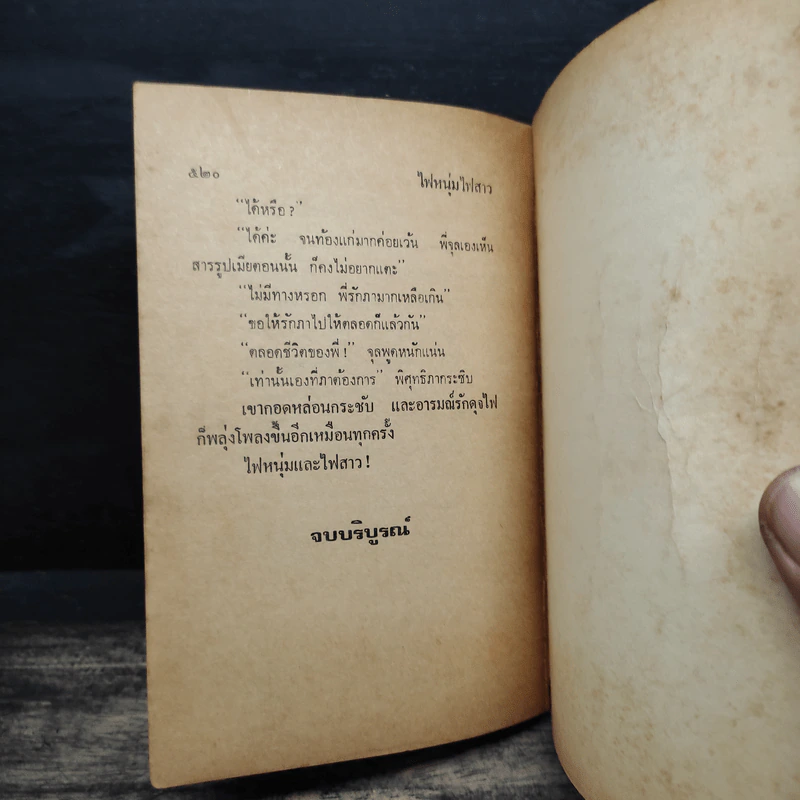 ๕๒๐
ไฟหนุ่มไฟสาว
“ได้หรือ ?”
“ได้ค่ะ จนท้องแก่มากค่อยเว้น พี่จุลเองเห็น
สารรูปเมียตอนนั้น ก็คงไม่อยากแตะ”
“ไม่มีทางหรอก พี่รักภามากเหลือเกิน”
“ขอให้รักภาไปให้ตลอดก็แล้วกัน”
“ตลอดชีวิตของพี่ !” จุลพูดหนักแน่น
“เท่านั้นเองที่ภาต้องการ” พิศุทธิภากระซิบ
เขากอดหล่อนกระชับ และอารมณ์รักดุจไฟ
ก็พลุ่งโพลงขึ้นอีกเหมือนทุกครั้ง
ไฟหนุ่มและไฟสาว !
จบบริบูรณ์